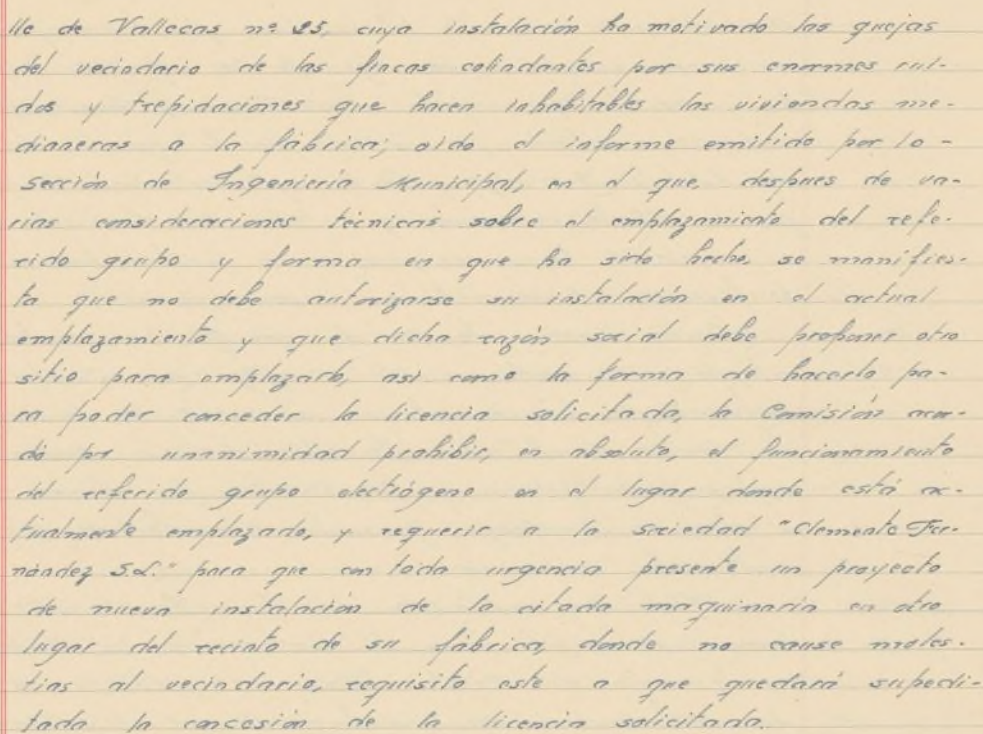 lle de Vallecas nº 25, cuya instalación ha motivado las quejas
del vecindario de las fincas colindantes por sus enormes rui-
dos y trepidaciones que hacen inhabitables las viviendas me-
dianeras a la fábrica; oido el informe emitido por la -
Sección de Ingeniería Municipal, en el que, despues de va-
rias consideraciones técnicas sobre el emplazamiento del refe-
rido grupo y forma en que ha sido hecho, se manifies-
ta que no debe autorizarse su instalación en el actual
emplazamiento y que dicha razón social debe proponer otro
sitio para emplazarlo, asi como la forma de hacerlo pa-
ra poder conceder la licencia solicitada, la Comisión acor-
dó por unanimidad prohibir, en absoluto, el funcionamiento
del referido grupo electrógeno en el lugar donde está ac-
tualmente emplazado, y requerir a la sociedad "Clemente Fer-
nández S.L." para que con toda urgencia presente un proyecto
de nueva instalación de la citada maquinaria en otro
lugar del recinto de su fábrica, donde no cause moles-
tias al vecindario, requisito este a que quedará supedi-
tada la concesión de la licencia solicitada.